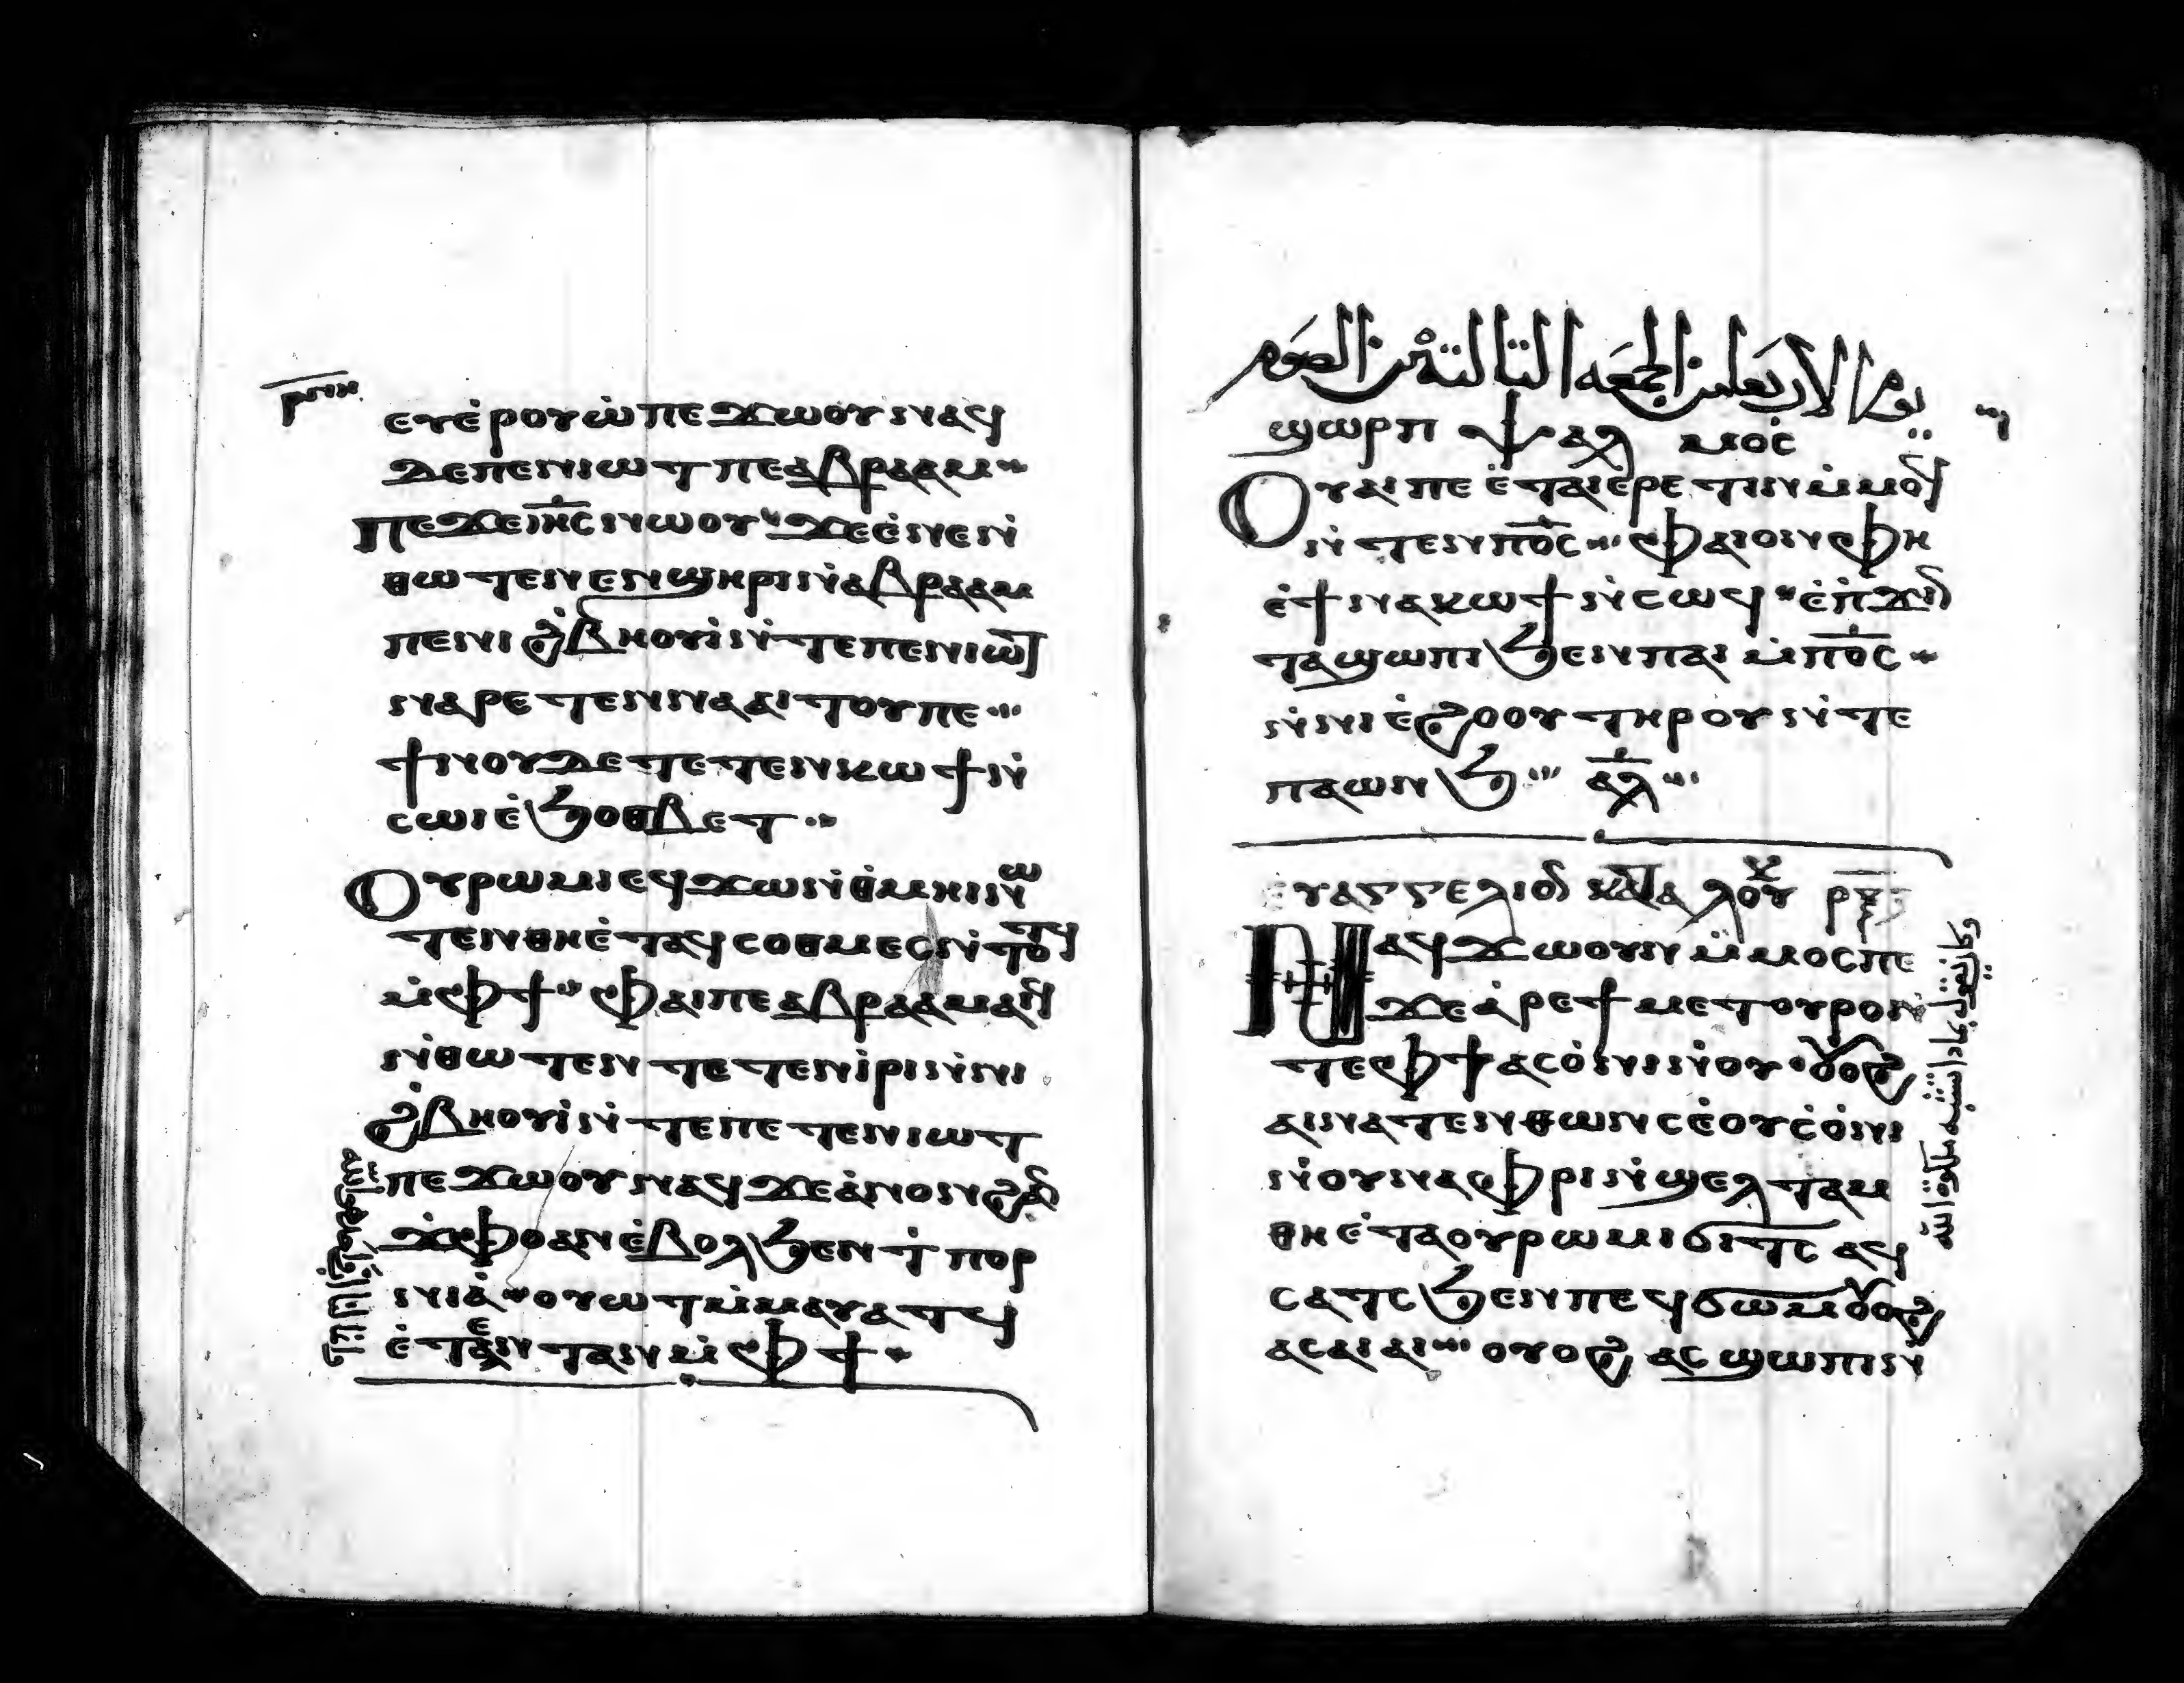 ⲉⲩⲉ̀ⲣⲟⲩⲱ̀ ⲡⲉϫⲱⲟⲩ ⲛⲁϥ
ϫⲉⲡⲉⲛⲓⲱⲧ ⲡⲉ ⲁⲃⲣⲁⲁⲙ
ⲡⲉϫⲉ ⲓⲏ̅ⲥ ⲛⲱⲟⲩ ϫⲉ ⲉ̀ⲛⲉ ⲛ̀
ⲑⲱⲧⲉⲛ ⲉⲛϣⲏⲣⲓ ⲛ̀ⲁⲃⲣⲁⲁⲙ
ⲡⲉ ⲛⲓϩ̀ⲃⲏⲟⲩⲓ̀ ⲛ̀ⲧⲉ ⲡⲉⲛⲓⲱⲧ
ⲛⲁⲣⲉⲧⲉⲛⲛⲁⲁⲓⲧⲟⲩ ⲡⲉ
ϯⲛⲟⲩ ⲇⲉ ⲧⲉⲧⲉⲛⲕⲱϯ ⲛ̀
ⲥⲱⲓ ⲉ̀ϧⲟⲑⲃⲉⲧ
Ⲟⲩⲣⲱⲙⲓ ⲉϥϫⲱ ⲛ̀ⲑⲙⲏⲓ ⲛⲱ
ⲧⲉⲛ ⲑⲏ ⲉ̀ⲧⲁϥⲥⲟⲑⲙⲉⲥ ⲛ̀ⲧⲟⲧϥ
ⲙ̀ⲫϯ ⲫⲁⲓ ⲡⲉ ⲁⲃⲣⲁⲁⲙ ⲁⲓϥ
ⲛ̀ⲑⲱⲧⲉⲛ ⲧⲉⲧⲉⲛⲓ̀ⲣⲓ ⲛ̀ⲛⲓ
ϩ̀ⲃⲏⲟⲩⲓ̀ ⲛ̀ⲧⲉ ⲡⲉⲧⲉⲛⲓⲱⲧ
ⲡⲉϫⲱⲟⲩ ⲛⲁϥ ϫⲉ ⲁ̀ⲛⲟⲛ ϩⲁⲛ
ϫ̀ⲫⲟ ⲁⲛ ⲉ̀ⲃⲟⲗ ϧⲉⲛ ϯ̀ⲡⲟⲣ
ⲛⲓⲁ̀ ⲟⲩⲱⲧ ⲙ̀ⲙⲁⲩⲁⲧϥ
ⲉ̀ⲧⲉⲛⲧⲁⲛ ⲙ̀ⲫϯ
يوم الاربعا من الجمعه التالته من الصوم
ϣⲱⲣⲡ ⲯⲁⲗⲙⲟⲥ
Ⲟⲩⲁⲓ ⲡⲉ ⲉ̀ⲧⲁⲓⲉⲣⲉⲧⲓⲛ ⲙ̀ⲙⲟϥ
ⲛ̀ⲧⲉⲛ ⲡⲟ̅ⲥ ⲫⲁⲓ ⲟⲛ ⲫⲏ
ⲉ̀ϯⲛⲁⲕⲱϯ ⲛ̀ⲥⲱϥ ⲉ̀ⲡ̀ϫⲓⲛ
ⲧⲁϣⲱⲡⲓ ϧⲉⲛ ⲡⲏⲓ ⲙ̀ⲡⲟ̅ⲥ
ⲛ̀ⲛⲓⲉ̀ϩⲟⲟⲩ ⲧⲏⲣⲟⲩ ⲛ̀ⲧⲉ
ⲡⲁⲱⲛϧ ⲁⲗ
ⲉⲩⲁⲅⲅⲉⲗⲓⲟⲛ ⲕⲁⲧⲁ ⲗⲟⲩⲕ
Ⲛⲁϥϫⲱ ⲟⲩⲛ ⲙ̀ⲙⲟⲥ ⲡⲉ
ϫⲉ ⲁ̀ⲣⲉ ϯⲙⲉⲧⲟⲩⲣⲟ ⲛ̀
ⲧⲉ ⲫϯ ⲁⲥⲟ̀ⲛⲓ ⲛ̀ⲟⲩ ⲟⲩⲟϩ
ⲁⲓⲛⲁⲧⲉⲛⲑⲱⲛⲥ ⲉ̀ⲟⲩ ⲥ̀ⲟ̀ⲛⲓ
ⲛ̀ⲟⲩⲛⲁⲫⲣⲓ ⲛ̀ϣⲉⲗⲧⲁⲙ
ⲑⲏ ⲉ̀ⲧⲁ ⲟⲩⲣⲱⲙⲓ ϭⲓⲧⲥ ⲁϥ
ⲥⲁⲧⲥ ϧⲉⲛ ⲡⲉϥϭⲱⲙ ⲟⲩⲟϩ
ⲁⲥⲁⲓⲁⲓ ⲟⲩⲟϩ ⲁⲥϣⲱⲡⲓ ⲛ̀
وكان يقول بماذا تشبه ملكوة الله